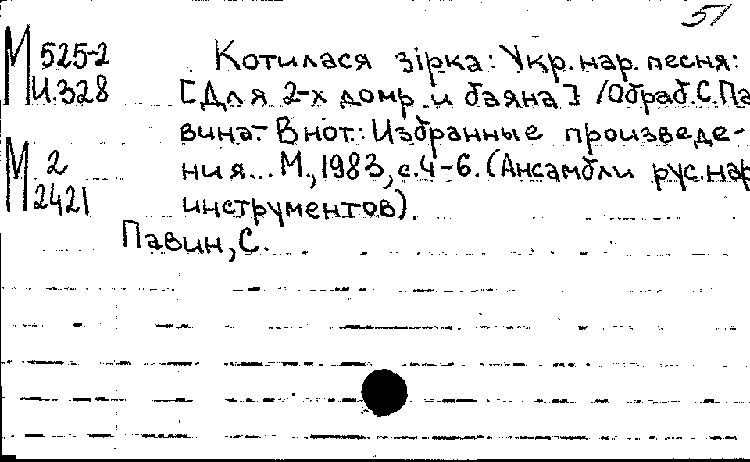 51
М 525-2 Котилася зірка: Укр. нар. песня:
И.328 [Для 2-х домр и баяна] /Обраб. С. Па
вина.- В нот.: Избранные произведе-
М 2 ния... М., 1983, с. 4-6. (Ансамбли рус. нар
2421 инструментов).
Павин, С.